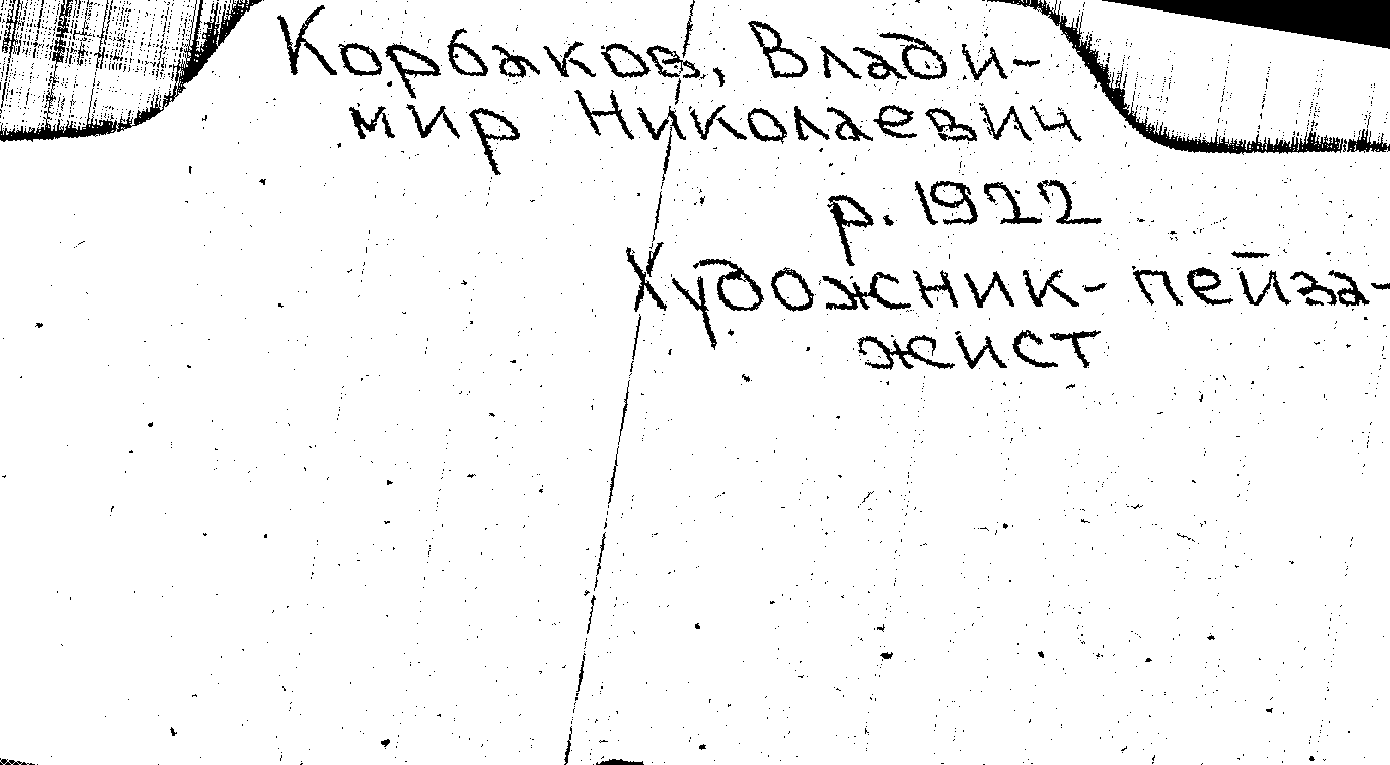 Корбаков, Влади-
мир Николаевич
р. 1922
Художник-пейза-
жист